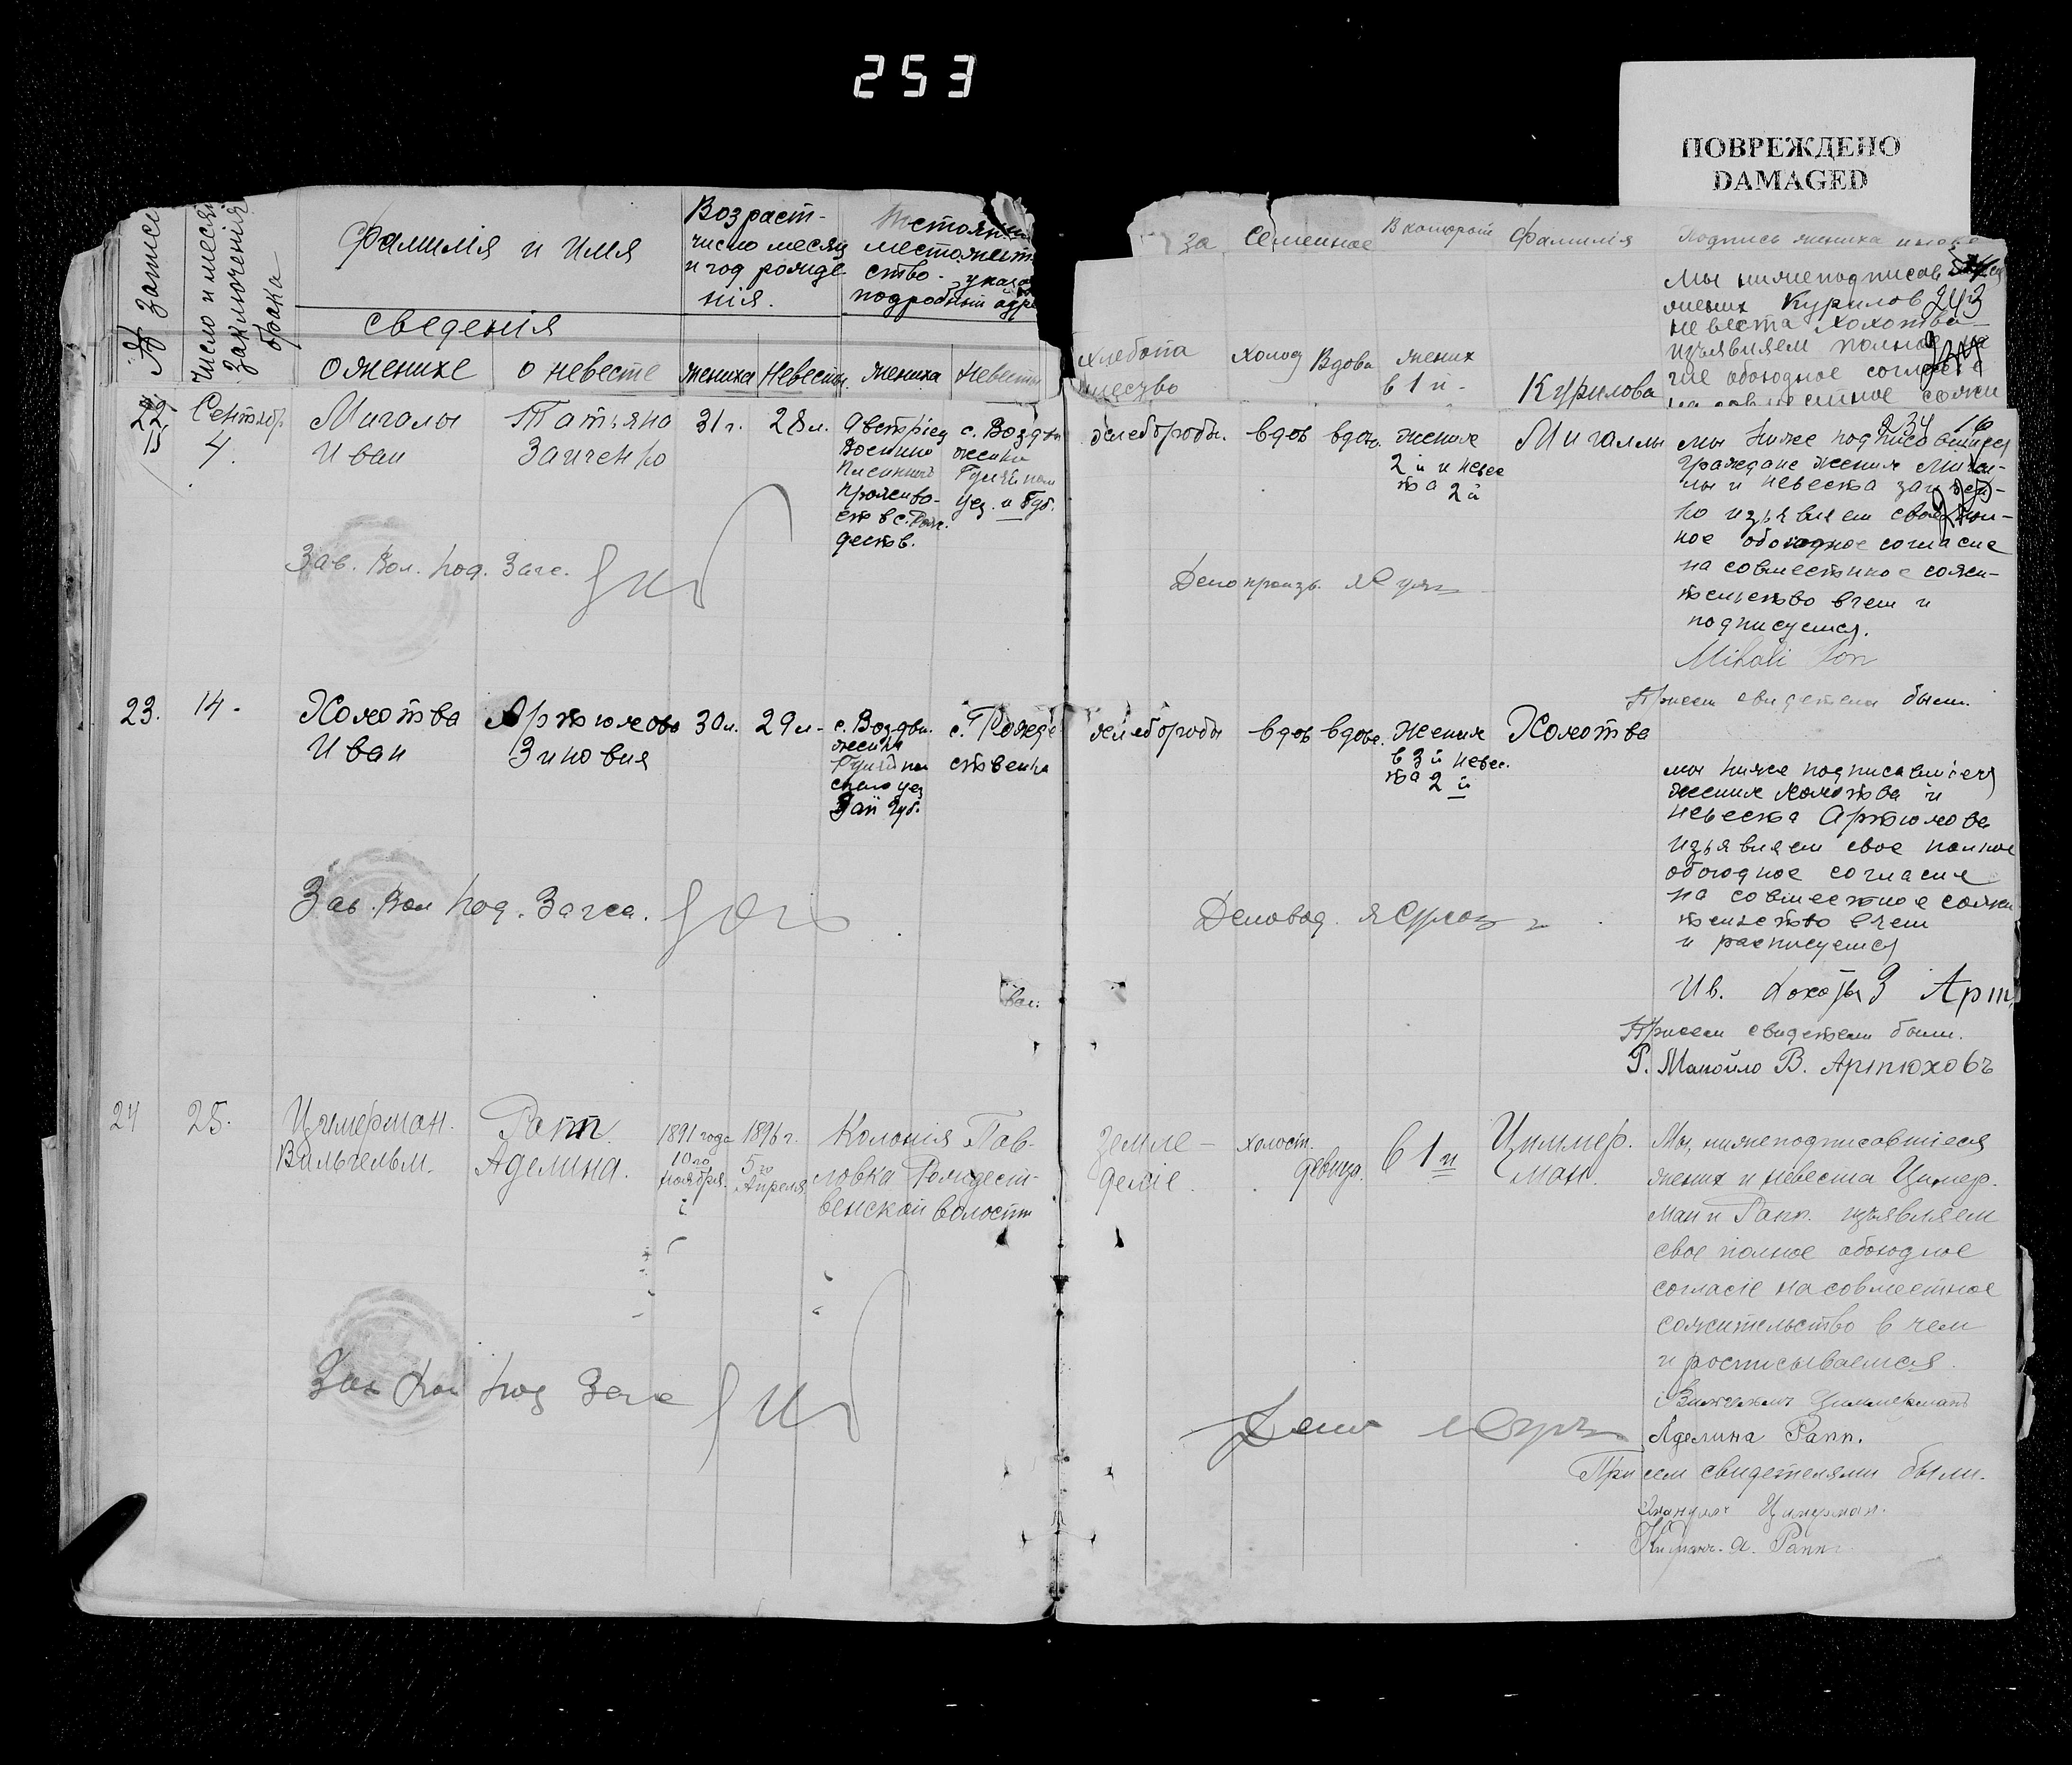 253
ПОВРЕЖДЕНО
DAMAGED
№ Записи
Число и месяц
заключенія
брака
Фамилія и имя
Возраст-
число месяц
и год рожде
нія.
местожит
ство - указа
подробный адре
сведенія
о женихе
о невесте
жениха
Невесты
жениха
Невесты
за
Семейное
В котором
Фамилія
Подпись жениха и неве
Хлебопа
шество
холост
Вдова
жених
в 1 й -
Курилова
Мы нижеподписав
жених Курилов
невеста Холотва
изъявляем полное
обоюдное
243
22
15
Сентябр
4.
Мигалы
Иван
Татьяна
Заиченко
31 г.
28 л.
Австріец
Военно
пленный
прожива-
ет в с. Рож-
деств.
с. Воздви
женка
Гуляйпол
уез. и Губ.
хлебороды.
вдов
вдова.
жених
2 й и невес
та 2 й
Мигаллы
234 16
мы ниже подписавшиеся
граждане жених Мига-
лы и невеста заичен-
ко изъявляем свое пол-
ное обоюдное согласие
на совместное сожи-
тельство в чем и
подписуемся.
Mihali Ion
При сем свидетели были.
Зав. Вол. под. Загс.
Делопроизв.
23.
14.
Холотва
Иван
Артюхова
Зиновия
30 л.
29 л.
с. Воздви.
женка
Гуляйпол
ского уез
Зап Губ.
с. Рожде
ственка
хлебороды
вдов
вдова.
Жених
в 3 й невес.
та 2 й
Холотва
мы ниже подписавшиеся
жених Холотва и
невеста Артюхова
изъявляем свое полное
обоюдное согласие
на совместное сожи
тельство в чем
и расписуемся
Ив. Холотва З Арт.
При сем свидетели были.
Р. Манойло В. Артюховъ
Зав. Вол под. Загса.
Деловод.
вол.
24
25.
Цимерман.
Вильгельм.
Рапп.
Аделина.
1891 года
10 го
ноября.
1896 г.
5 го
Апреля
Колонія Пав-
ловка Рождест-
венской волости
Земле-
деліе
холост.
девица.
в 1 й
Циммер.
ман.
Мы, нижеподписавшіеся
жених и невеста Цимер.
ман и Рапп. изъявляем
свое полное обоюдное
согласіе на совместное
сожительство в чем
и росписываемся.
Вильгельм Циммерманъ
Аделина Рапп.
При сем свидетелями были.
Цимерман.
Рапп
Зав Вол под Загс
Дело